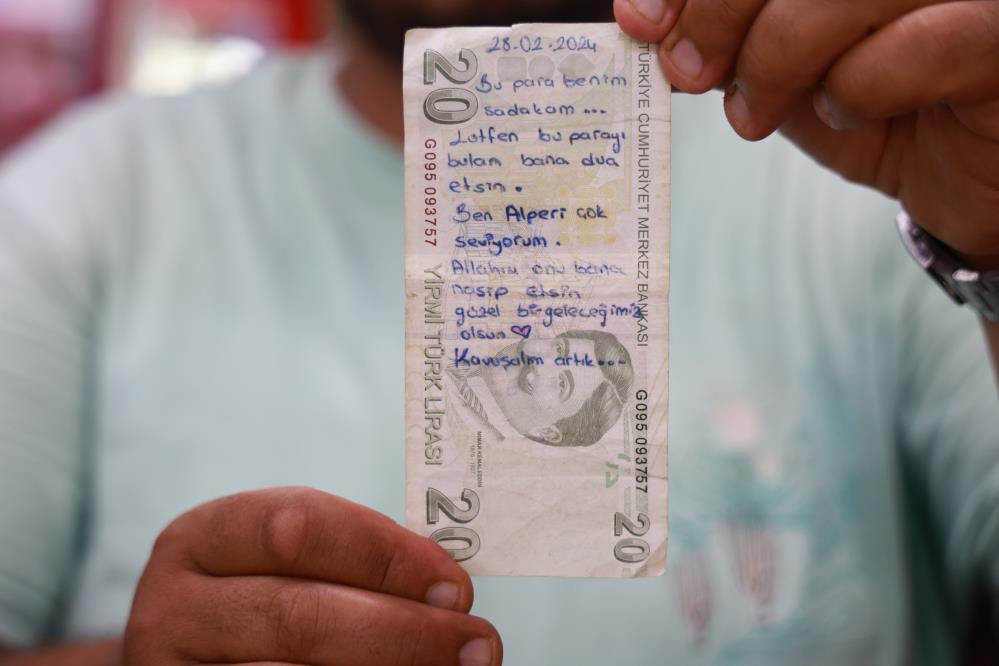 28.02.2024
Bu para benim
sadakam ...
Lütfen bu parayı
bulan bana dua
etsin.
Ben Alperi çok
seviyorum.
Allahım onu bana
nasip etsin
güzel bir geleceğimiz
olsun ♡
Kavuşalım artık...
20
G095 093757
YİRMİ TÜRK LİRASI
20
MİMAR KEMALEDDİN
1870 - 1927
TÜRKİYE CUMHURİYET MERKEZ BANKASI
G095 093757
20